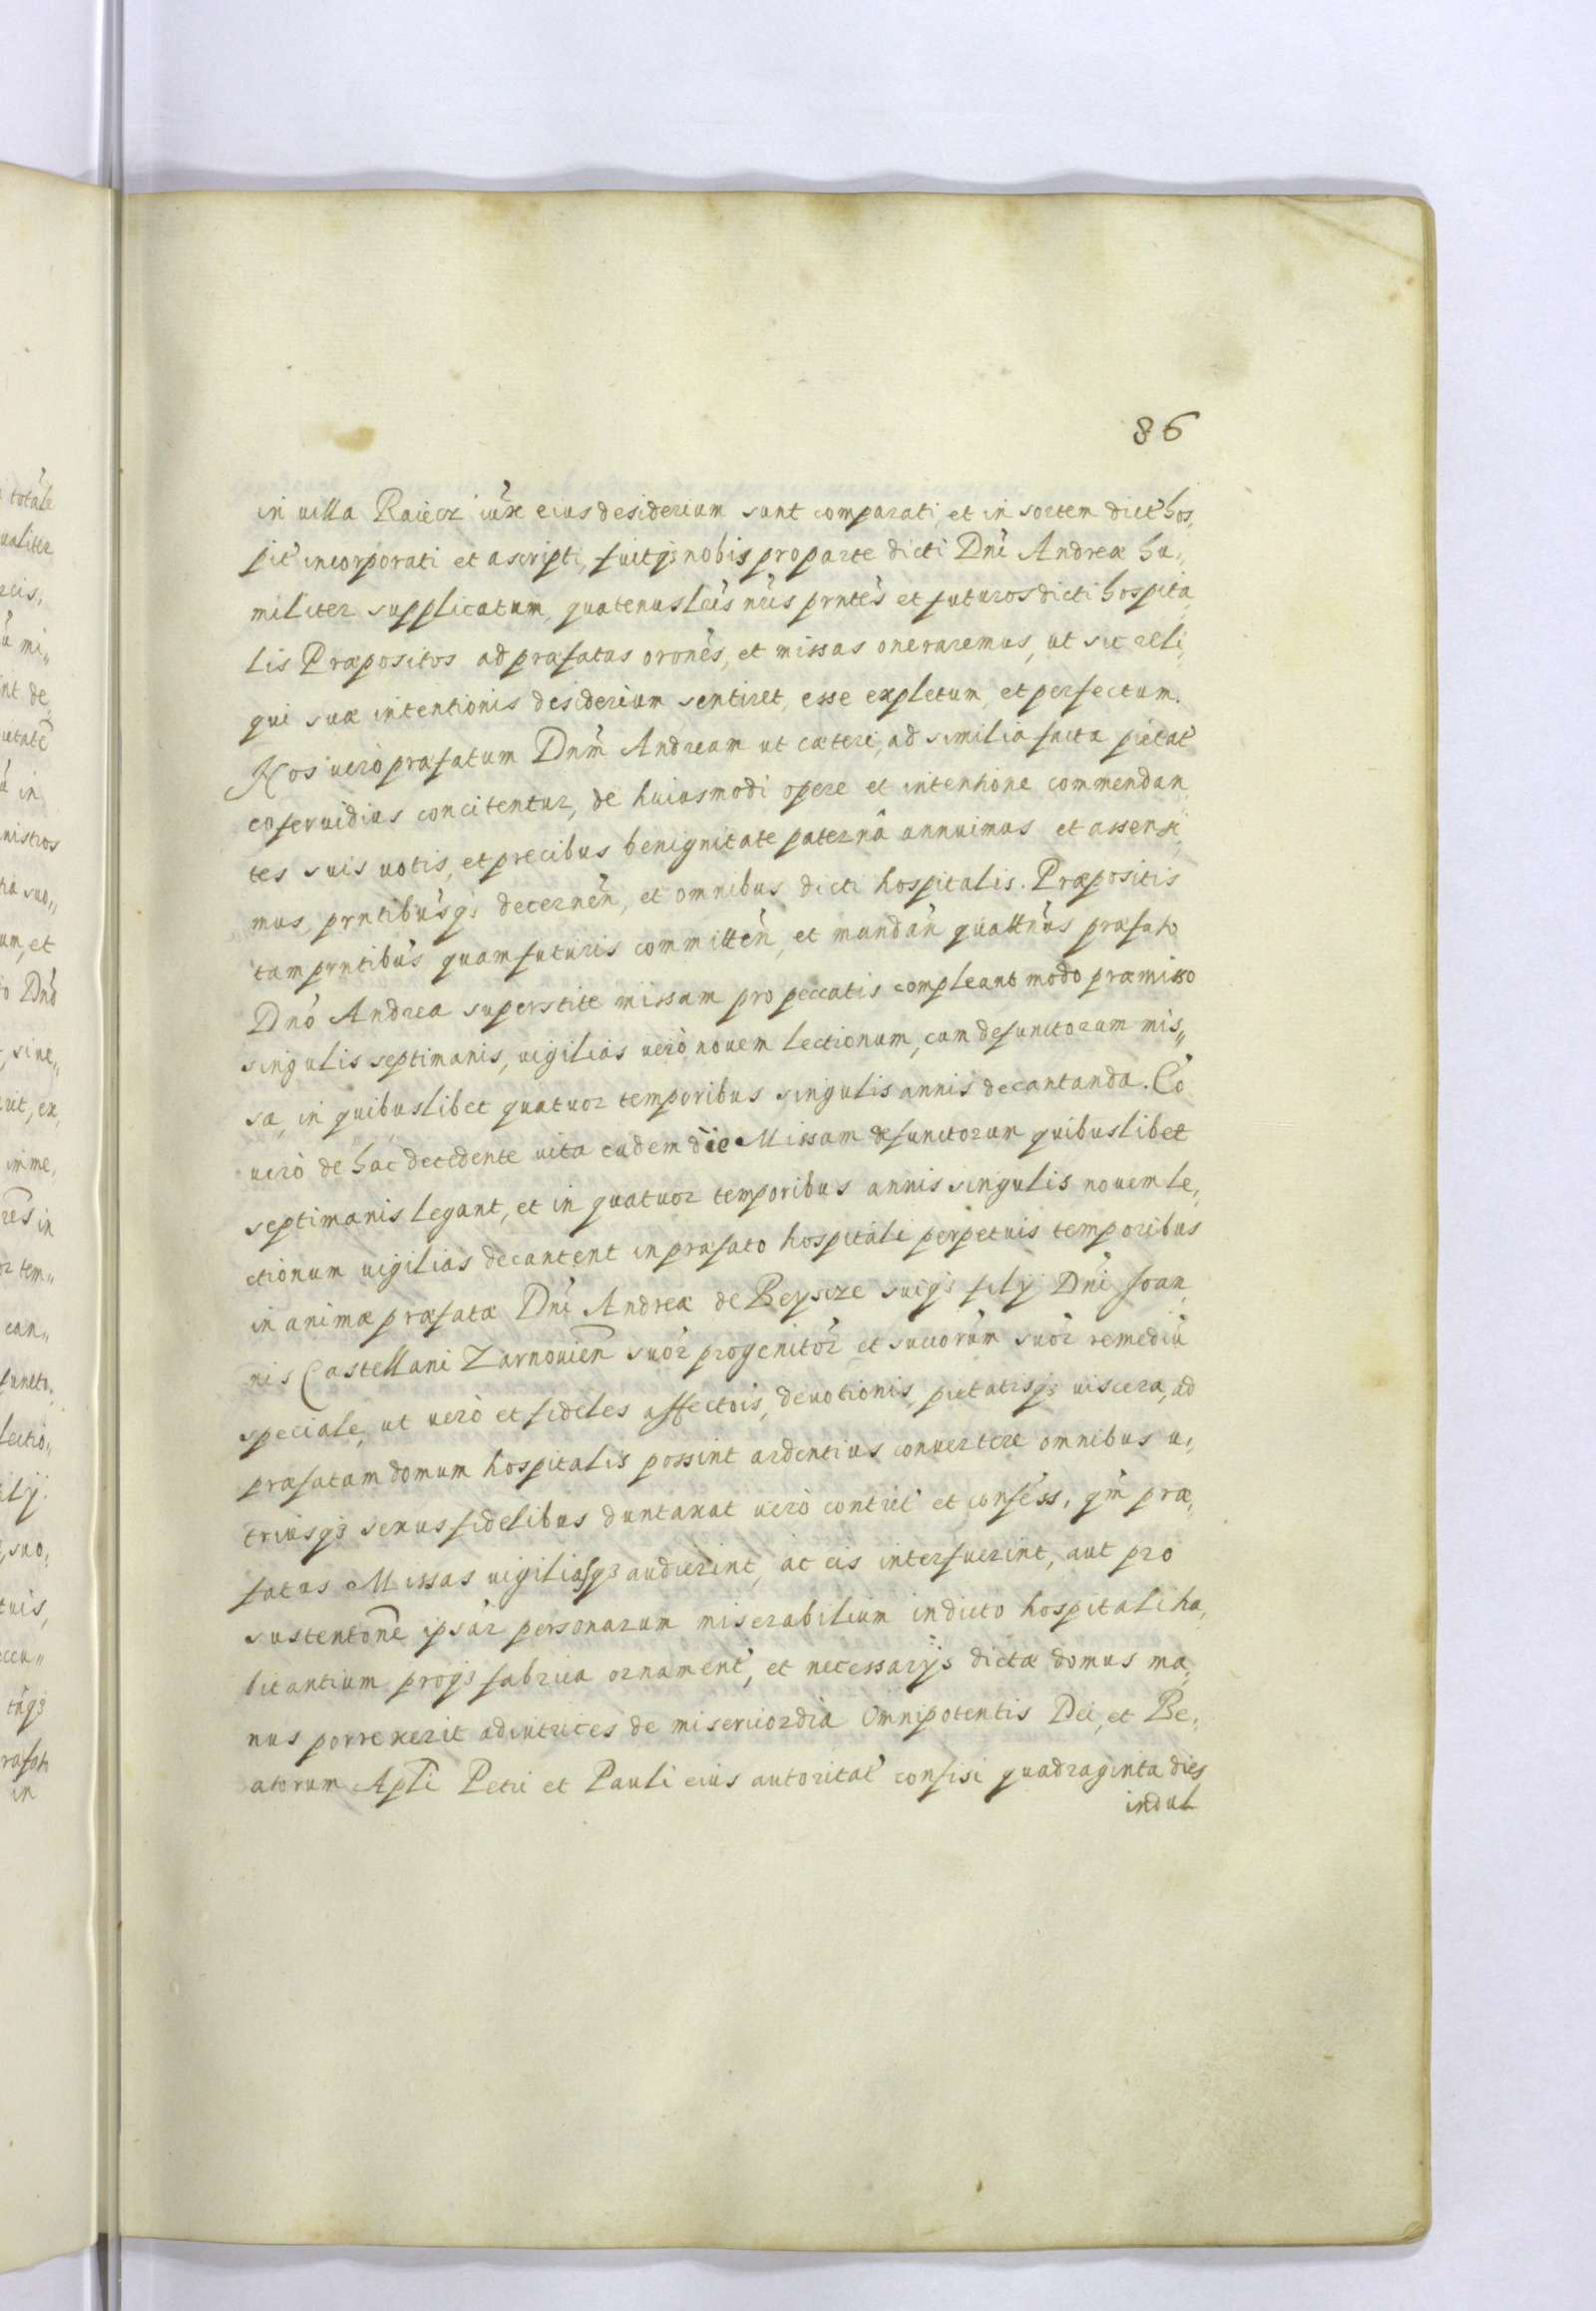 86
in uilla Raiecz iux̃ eius desiderium sunt comparati, et in sortem dict̃ hos,
pit̃ incorporati et ascripti, fuitq3 nobis pro parte dicti Dnĩ Andreæ hu,
militer supplicatum, quatenus lr̃is nr̃is prntẽs et futuros dicti hospita,
lis Præpositos ad præfatas oronẽs, et missas oneraremus, ut sic reli,
qui suæ intentionis desiderium sentiret, esse expletum, et perfectum.
Nos uerò præfatum Dnm̃ Andream ut cæteri, ad similia facta pietat̃
eo feruidius concitentur, de huiusmodi opere et intentione commendan,
tes suis uotis, et precibus benignitate paternâ annuimus et assensi,
mus, prntibũsq3 decernẽn, et omnibus dicti hospitalis. Præpositis
tam prntibũs quam futuris committẽn, et mandãn quattnũs præfato
Dnõ Andrea superstite missam pro peccatis compleant modo præmisso
singulis septimanis, uigilias uerò nouem lectionum, cum defunctorum mis,,
sa, in quibuslibet quatuor temporibus singulis annis decantanda. Eo
uerò de hac decedente uita eadem die Missam defunctorum quibuslibet
septimanis legant, et in quatuor temporibus annis singulis nouem le,
ctionum uigilias decantent in præfato hospitali perpetuis temporibus
in animæ præfatæ Dnĩ Andreæ de Beysce suiq3 filij Dnĩ Joan,
nis Castellani Zarnouien̄ suor̃ progenitor̃ et succorũm suor̃ remediũ
speciale, ut uerò et fideles affectõis, deuotionis, pietatisq3 uiscera, ad
præfatam domum hospitalis possint ardentius conuertere omnibus u,
triusq3 sexus fidelibus duntaxat uerò contrit̃ et confess̃, qm̃ præ,
fatas Missas uigiliasq3 audierint, ac eis interfuerint, aut pro
sustentonẽ ipsar̃ personarum miserabilium in dicto hospitali ha,
bitantium proq3 fabrica ornament̃, et necessarijs dictæ domus ma,
nus porrexerit adiutrices de misericordia Omnipotentis Dei, et Be,
atorum Aplĩ Petri et Pauli eius autoritat̃ confisi quadraginta dies
indul